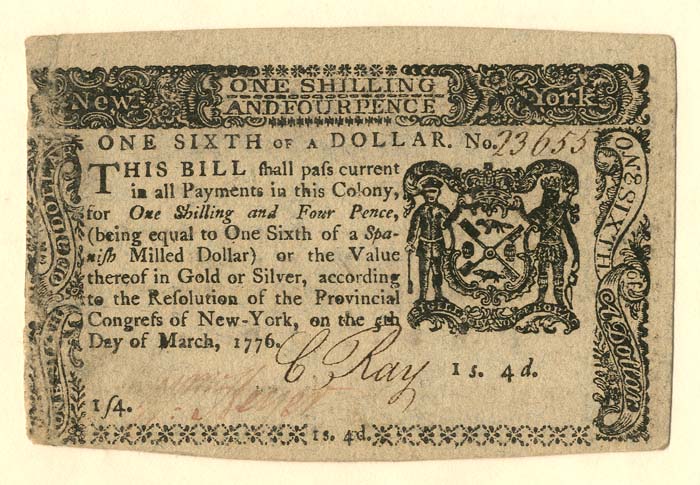 ONE SHILLING
New York
AND FOURPENCE
ONE SIXTH OF A DOLLAR. No. 23655
THIS BILL ſhall paſs current
in all Payments in this Colony,
for One Shilling and Four Pence,
(being equal to One Sixth of a Spa-
niſh Milled Dollar) or the Value
thereof in Gold or Silver, according
to the Reſolution of the Provincial
Congreſs of New-York, on the 5th
Day of March, 1776.
C. Ray
1 s. 4 d.
1ſ4.
1s. 4d.
ONE SIXTH
of
A Dollar